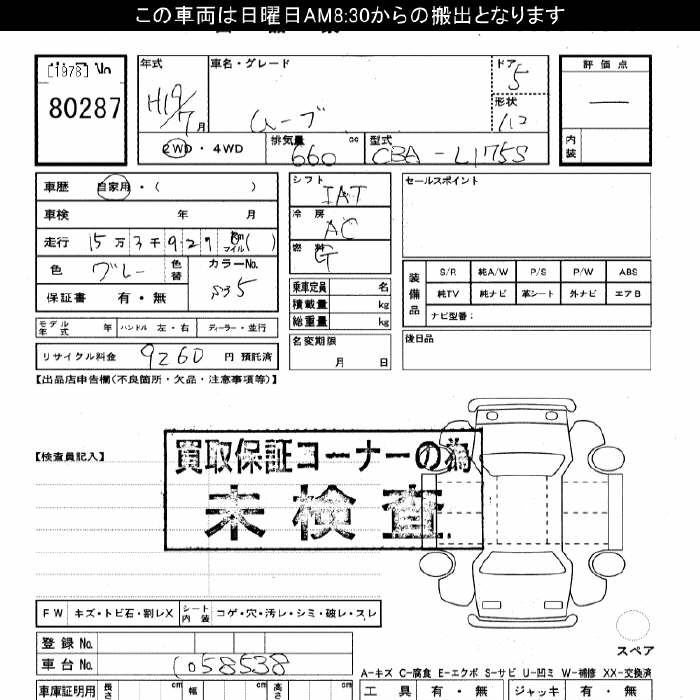 この車両は日曜日AM8:30からの搬出となります
[1978] No
80287
年式 H19/7月
車名・グレード ムーブ
ドア 5
形状
評価点 —
内装
2WD・4WD
排気量 660 cc
型式 CBA-L175S
車歴 自家用・( )
車検 年 月
走行 15万3千9 2 9 Km マイル ( )
色 グレー 色替
カラーNo. S35
保証書 有・無
モデル年式 年 ハンドル 左・右 ディーラー・並行
リサイクル料金 9260 円 預託済
シフト IAT
冷房 AC
燃料 G
乗車定員 名
積載量 kg
総重量 kg
名変期限 月 日
セールスポイント
装備品
S/R 純A/W P/S P/W ABS
純TV 純ナビ 革シート 外ナビ エアB
ナビ型番:
後日品
【出品店申告欄(不良箇所・欠品・注意事項等)】
【検査員記入】
買取保証コーナーの為
未検査
FW キズ・トビ石・割レX
シート内装 コゲ・穴・汚レ・シミ・破レ・スレ
登録 No.
車台 No. 058538
スペア
A-キズ C-腐食 E-エクボ S-サビ U-凹ミ W-補修 XX-交換済
車庫証明用 長さ cm 幅 cm 高さ cm
工具 有・無 ジャッキ 有・無